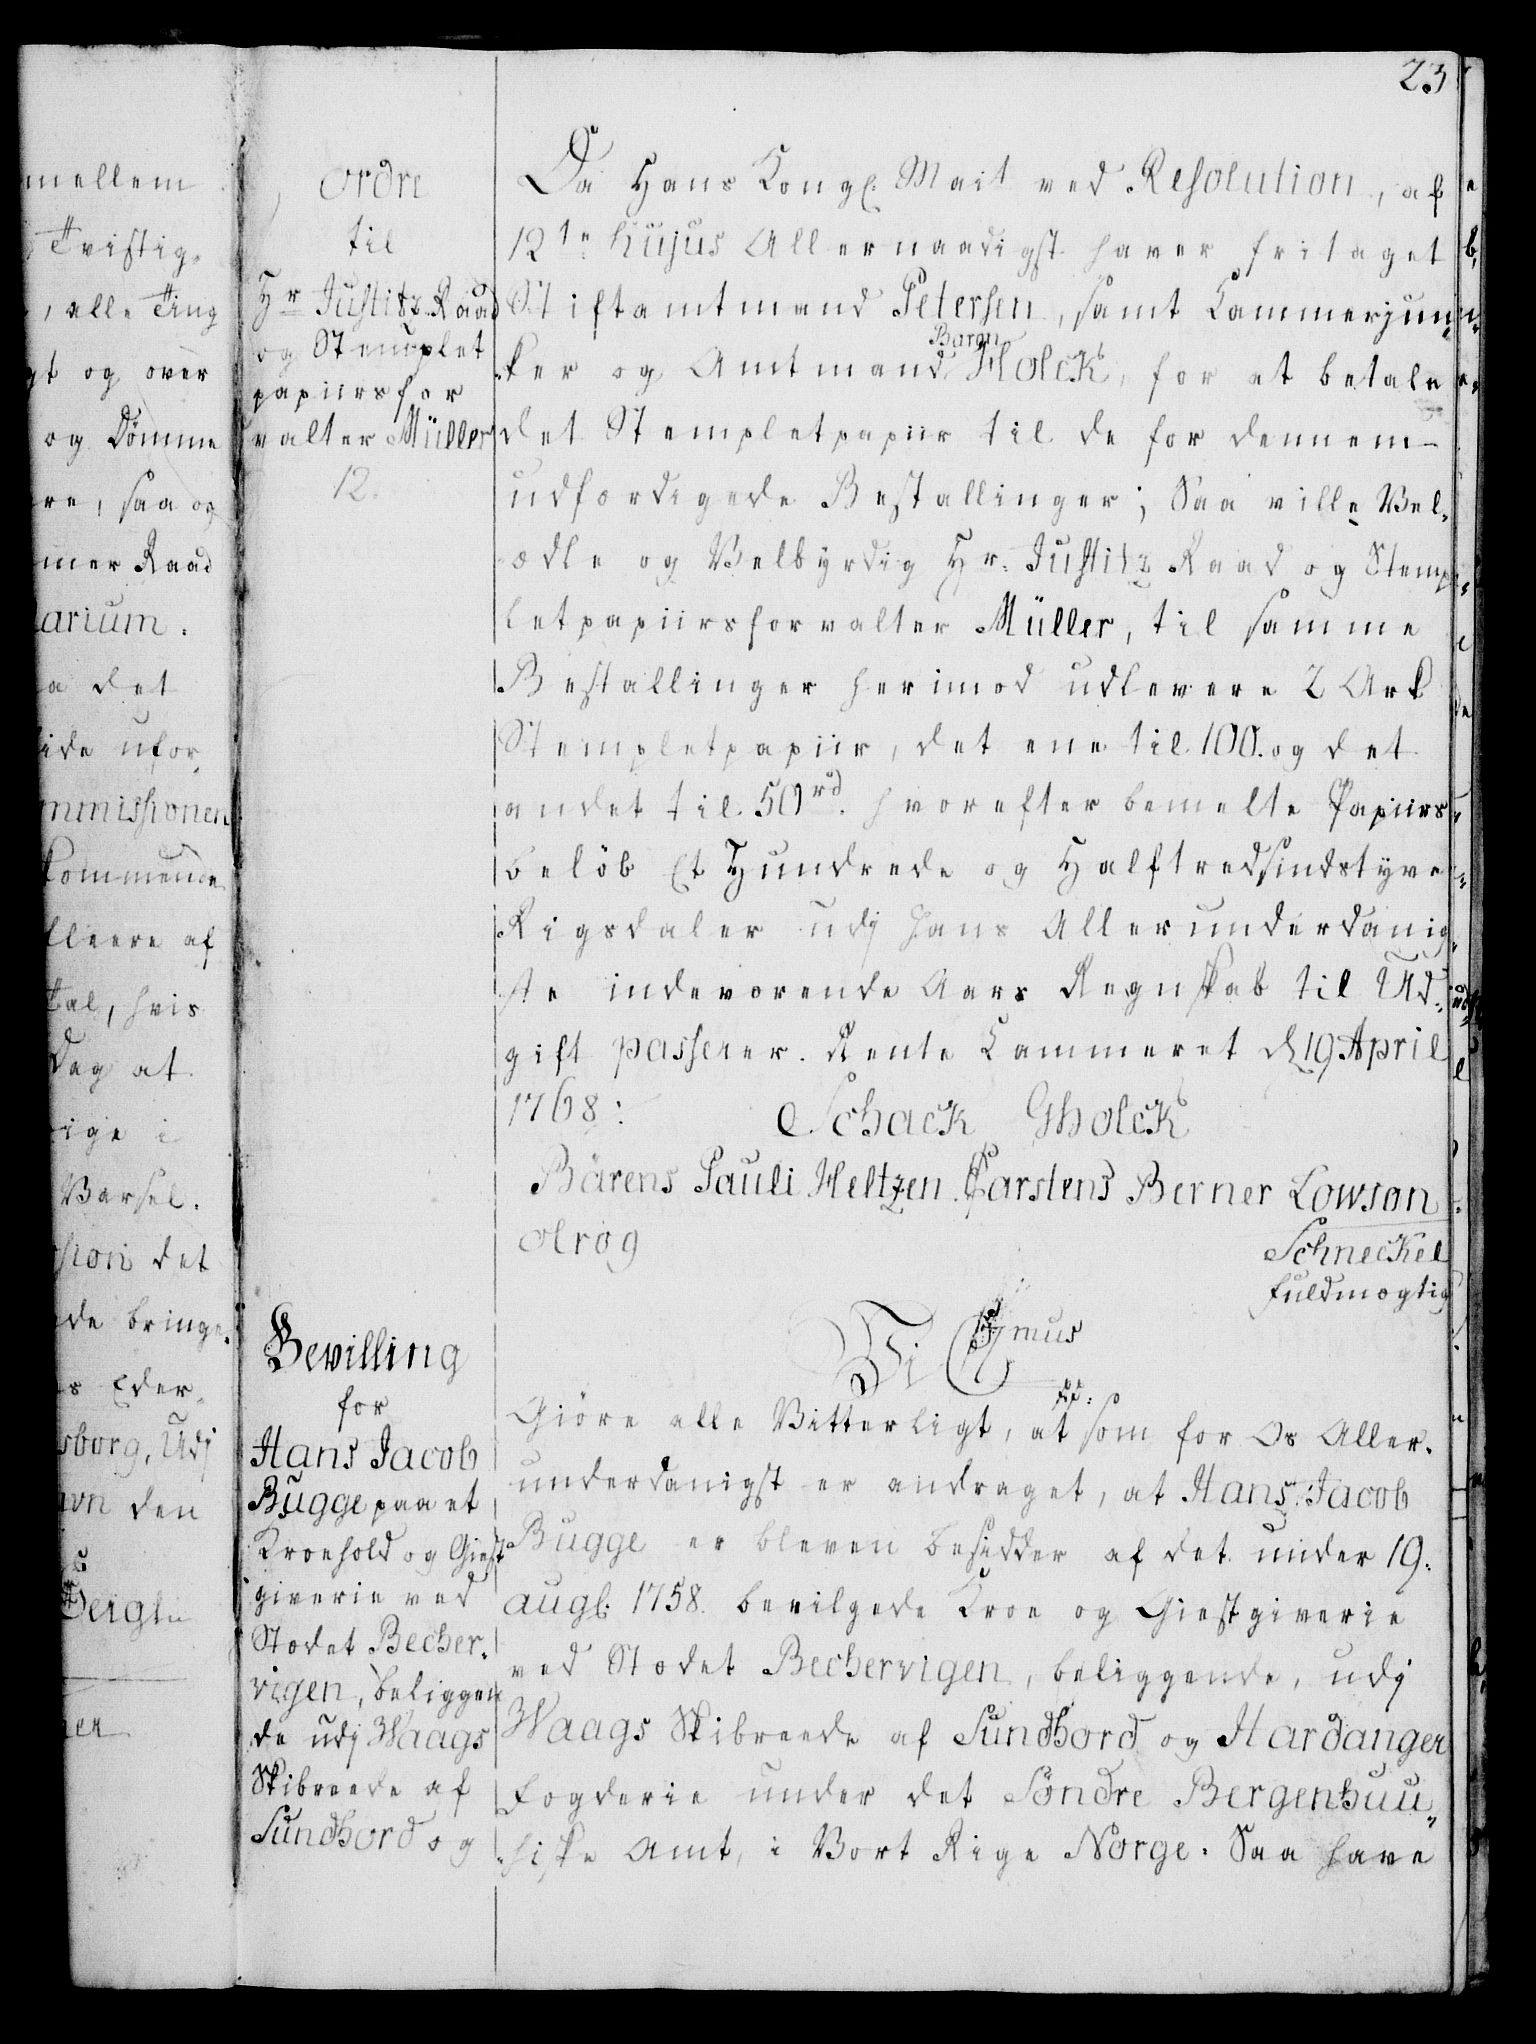 23
mellem
Tvistig,
, alle Ting
gt og over
og Dömme
re, saa og
mer Raad
arium.
a det
ide ufor,
mmissionen
kommende
lleere af
Tal, hvis
Dag at
ige i
Varsel.
sion det
de bringe,
s Eder,
sborg, Udj
avn den
Ordre
til
Hr Justitz Raad
og Stemplet
papiirsfor
valter Müller
12.
Da Hans Kongl: Mait ved Resolution, af
12te hujus Allernaadigst haver fritaget
Stiftamtmand Petersen, samt Cammerjun,
Baron
ker og Amtmand Holck, for at betale
det Stempletpapiir til de for dennem
udfærdigede Bestallinger; Saa ville Vel,
ædle og Velbyrdig Hr. Justitz Raad og Stemp
letpapiirsforvalter Müller, til samme
Bestallinger herimod udlevere 2 Ark
Stempletpapiir, det ene til 100. og det
andet til 50 rd. hvorefter bemelte Papiirs
belöb Et Hundrede og Halftredsindstyve
Rigsdaler udj Hans Allerunderdanig,
ste indeværende Aars Regnskab til Ud,
gift passerer. Rente Cammeret d 19 April
1768:
Schack GHolck
Bärens Pauli Heltzen. Carstens Berner Lowson
Olrog
Schneckel
fuldmægtig
Bevilling
for
Hans Jacob
Bugge paa et
Kroehold og Giest
giverie ved
Stædet Becher,
vigen, beliggen
de udj Waags
Skibreede af
Sundhord og
Vi C7mus
Giöre alle Vitterligt, at som for Os Aller,
underdanigst er andraget, at Hans Jacob
Bugge er bleven besidder af det under 19.
augl: 1758. bevilgede Kroe og Giestgiverie
ved Stædet Bechervigen, beliggende, udj
Waags Skibreede af Sundhord og Hardanger
Fogderie under det Söndre Bergenhuu,
siske Amt, i Vort Rige Norge. Saa have